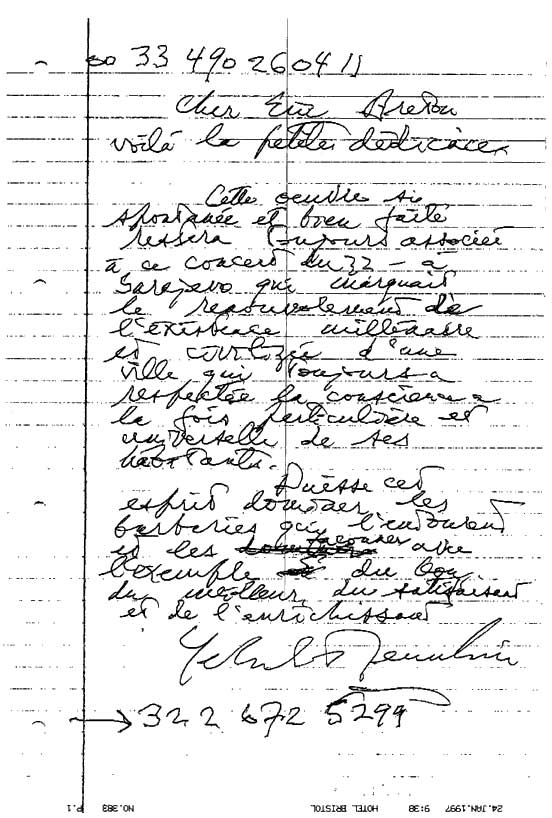 00 33 490 260411
Cher Eric Breton
voilà la petite dédicace
Cette oeuvre si
spontanée et bien faite
restera toujours associée
à ce concert du 22 – à
Sarajevo qui marquait
le renouvellement de
l'existence millénaire
et civilizée d'une
ville qui toujours a
respectée la conscience a
la fois particulière et
universelle de ses
habitants.
Puisse cet
esprit dominer les
barbaries qui l'entourent
et les façonner avec
l'exemple du bon
du meilleur, du satisfaisant
et de l'enrichissant
Yehudi Menuhin
→ 322 672 5299
24.JAN.1997 9:38 HOTEL BRISTOL NO.383 P.1